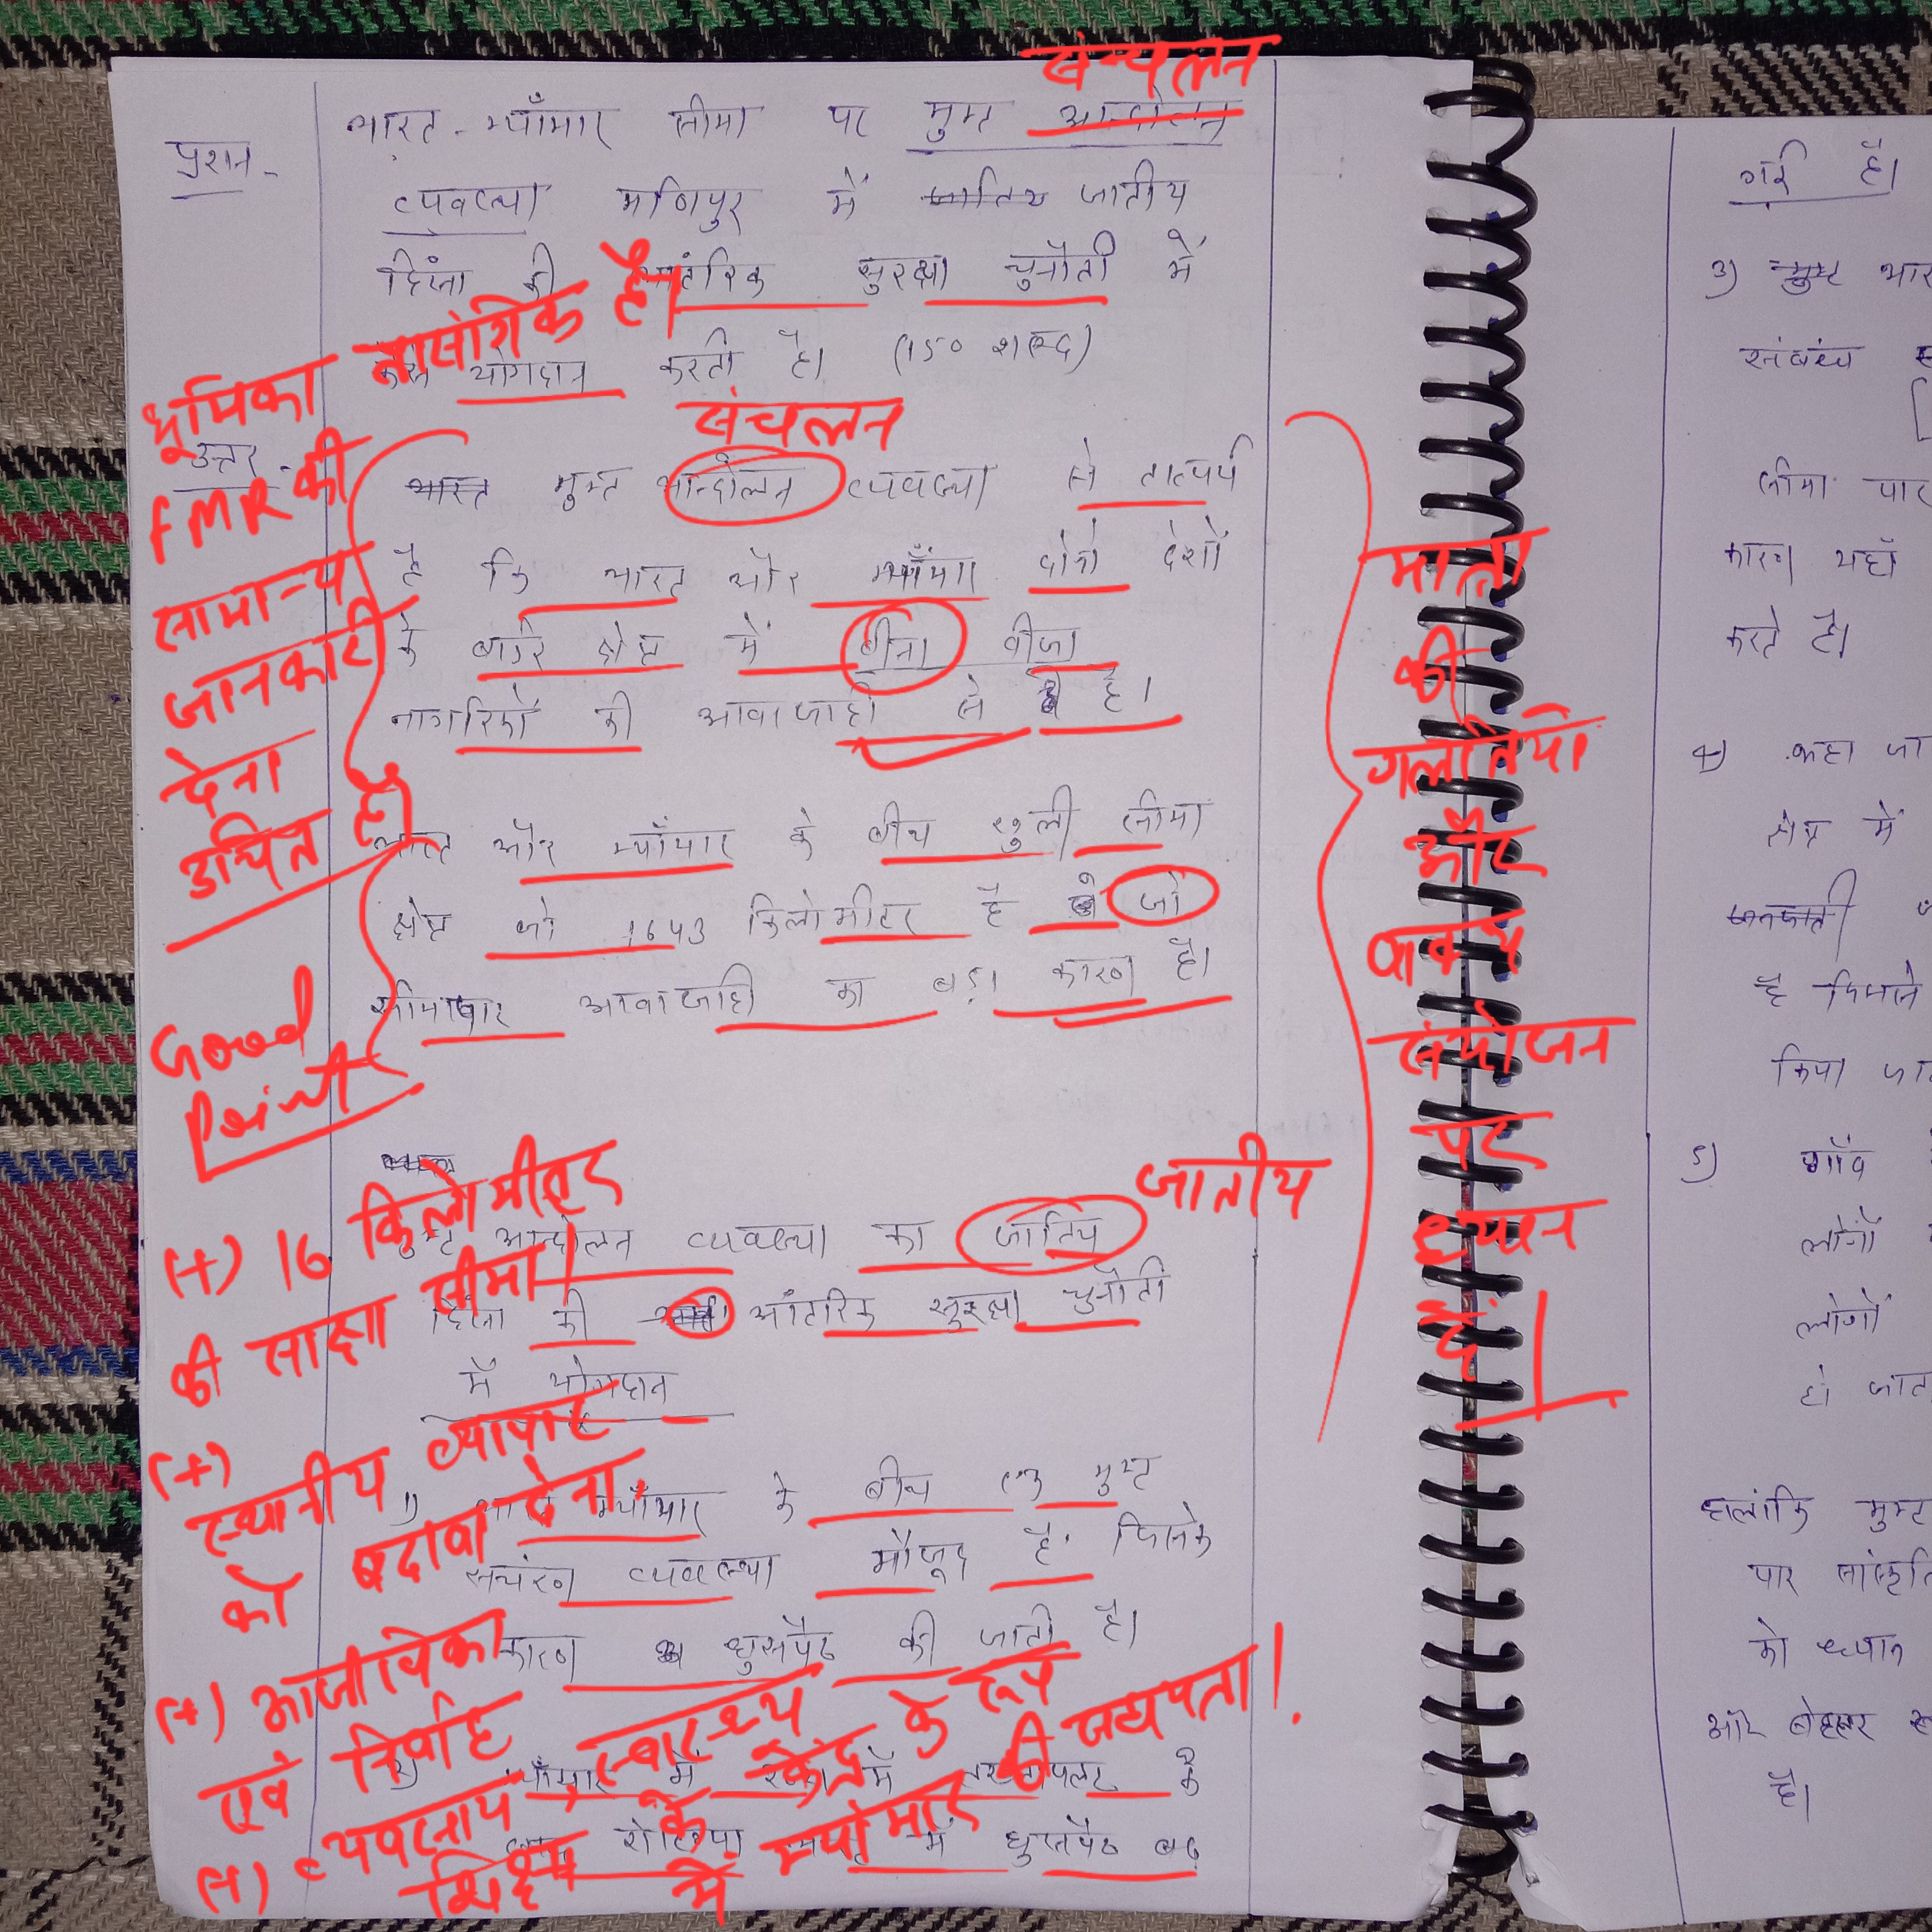 संचलन
प्रशन- भारत-म्याँमार सीमा पर मुक्त आन्दोलन
व्यवस्था मणिपुर में जातिय जातीय
हिंसा की आंतरिक सुरक्षा चुनौती में
कैसे योगदान करती है। (150 शब्द)
भूमिका प्रासंगिक है।
FMR की
सामान्य
जानकारी
देना
उचित है।
संचलन
उत्तर- भारत मुक्त आन्दोलन व्यवस्था से तात्पर्य
है कि भारत और म्याँमार दोनो देशों
के बार्डर क्षेत्र में बीना वीजा
नागरिकों की आवाजाही से है।
भारत और म्याँमार के बीच खुली सीमा
क्षेत्र जो 1643 किलोमीटर है जो
सीमापार आवाजाही का बड़ा कारण है।
Good
Point
मात्रा
की
गलतियों
और
वाक्य
संयोजन
पर
ध्यान
दें।
जातीय
मुक्त आन्दोलन व्यवस्था का जातिय
हिंसा की आंतरिक सुरक्षा चुनौती
में योगदान
(+) 16 किलोमीटर
की साझा सीमा।
(+)
स्थानीय व्यापार
को बढ़ावा देना,
1) भारत म्याँमार के बीच एक मुक्त
सचंरण व्यवस्था मौजूद है. जिसके
कारण घुसपैठ की जाती है।
(+) आजीविका
एवं निर्वाह
2) म्याँमार में तख्तापलट के
रोहिंग्या में घुसपैठ बढ़
(+) व्यवसाय, स्वास्थ्य
शिक्षा के केंद्र के रूप
में म्यांमार की सहायता।
गई है।
3) भार
संबंध
सीमा पार
कारण यहाँ
करते है।
4) कहा जा
क्षेत्र में
जनजाती
है जिसमे
किया जा
5) गाँव
लोगों
लोगों
हो जात
हालांकि मुक्त
पार सांस्कृति
को ध्यान
और बेहतर
है।